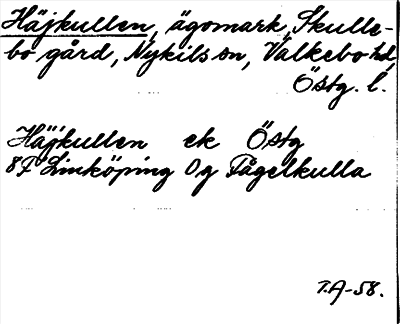 Häjkullen, ägomark, Skulle-
bo gård, Nykils sn, Valkebo hd,
Östg. l.
Häjkullen ek Östg
8F Linköping Og Fågelkulla
T.A-58.